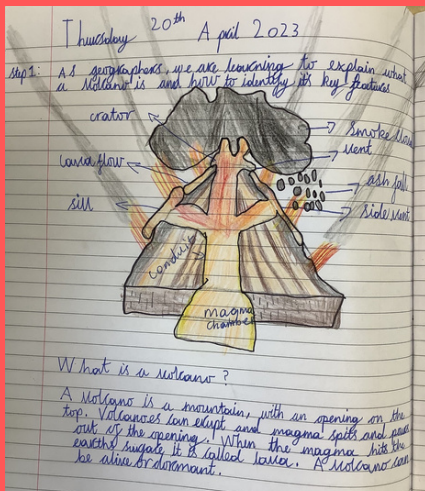 Thursday 20th April 2023
step 1: As geographers, we are learning to explain what
a volcano is and how to identify its key features
crator
smoke
vent
lava flow
ash fall
sill
side vent
conduit
magma
chamber
What is a volcano?
A volcano is a mountain, with an opening on the
top. Volcanoes can erupt and magma spits and
out of the opening. When the magma hits the
earths surface it is called lava. A volcano can
be alive or dormant.